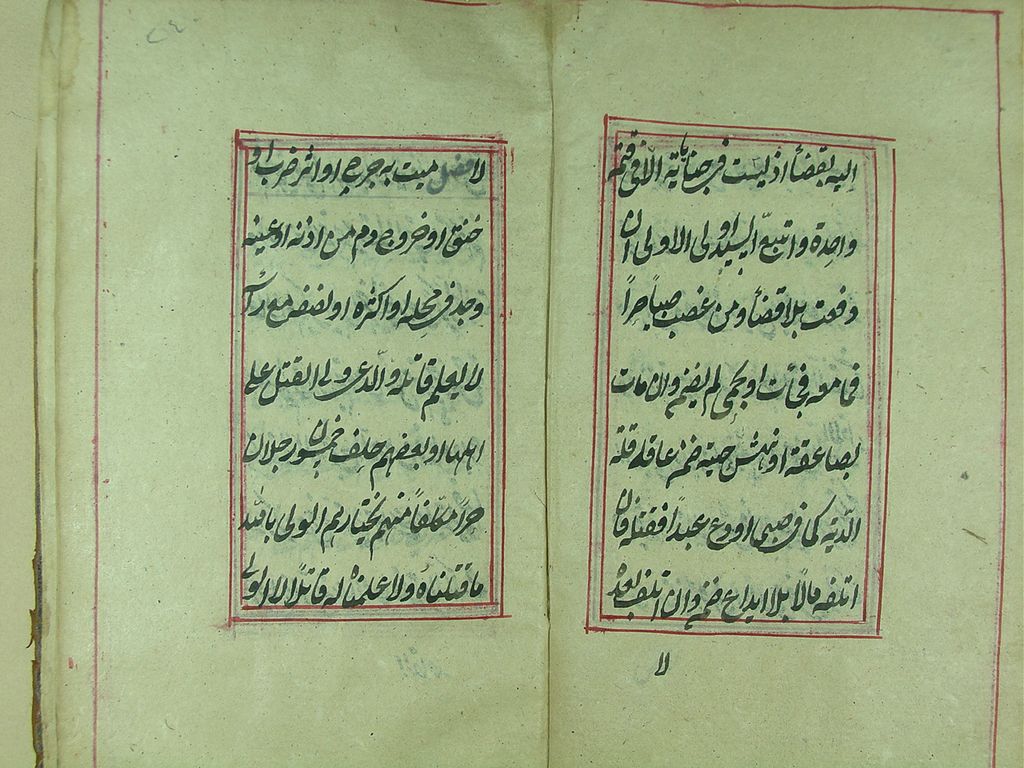 اليه بقضأ اذ ليست فى جناية الا فى قيمة
واحدة واتبع السيد او لى الاولى ان
دفعت بلا قضأ ومن غصب صبياً حراً
فمات معه فجأت او بحمى لم يضمن وان مات
بصاعقة او نهش حية ضمن عاقلته
الدية كما فى صبى اودع عبداً فقتله فان
اتلف مالاً بلا ايداع ضمن وان اتلف بعده
لا
٢٤
لا ميت به جرح او اثر ضرب او
خنق او خروج دم من اذنه او عينه
وجد فى محلة او اكثره او نصفه مع رأسه
لا يعلم قاتله وادعى ولى القتل على
اهلها او بعضهم حلف خمسون رجلا
حراً مكلفاً منهم يختارهم الولى بالله
ما قتلناه ولا علمنا له قاتلا لا الولى